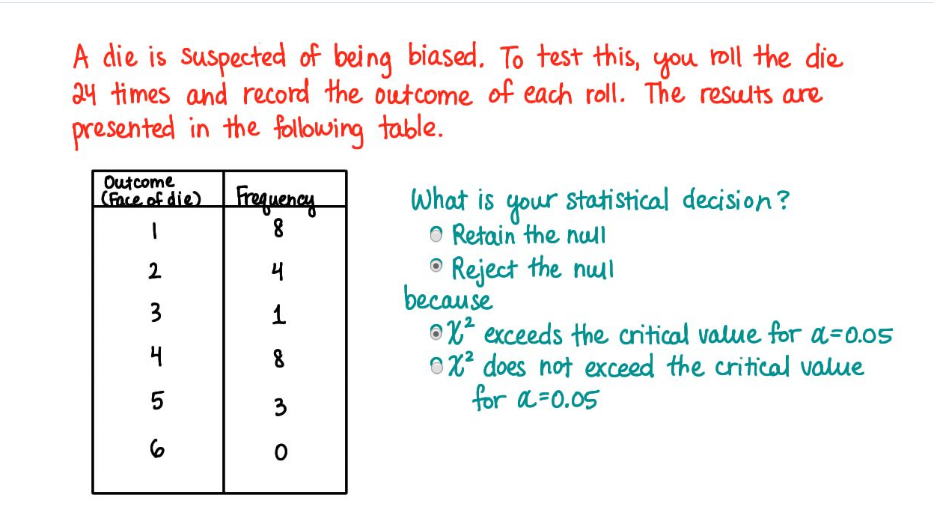 A die is suspected of being biased. To test this, you roll the die
24 times and record the outcome of each roll. The results are
presented in the following table.
Outcome
(Face of die) Frequency
1 8
2 4
3 1
4 8
5 3
6 0
What is your statistical decision?
Retain the null
Reject the null
because
χ² exceeds the critical value for α=0.05
χ² does not exceed the critical value
for α=0.05